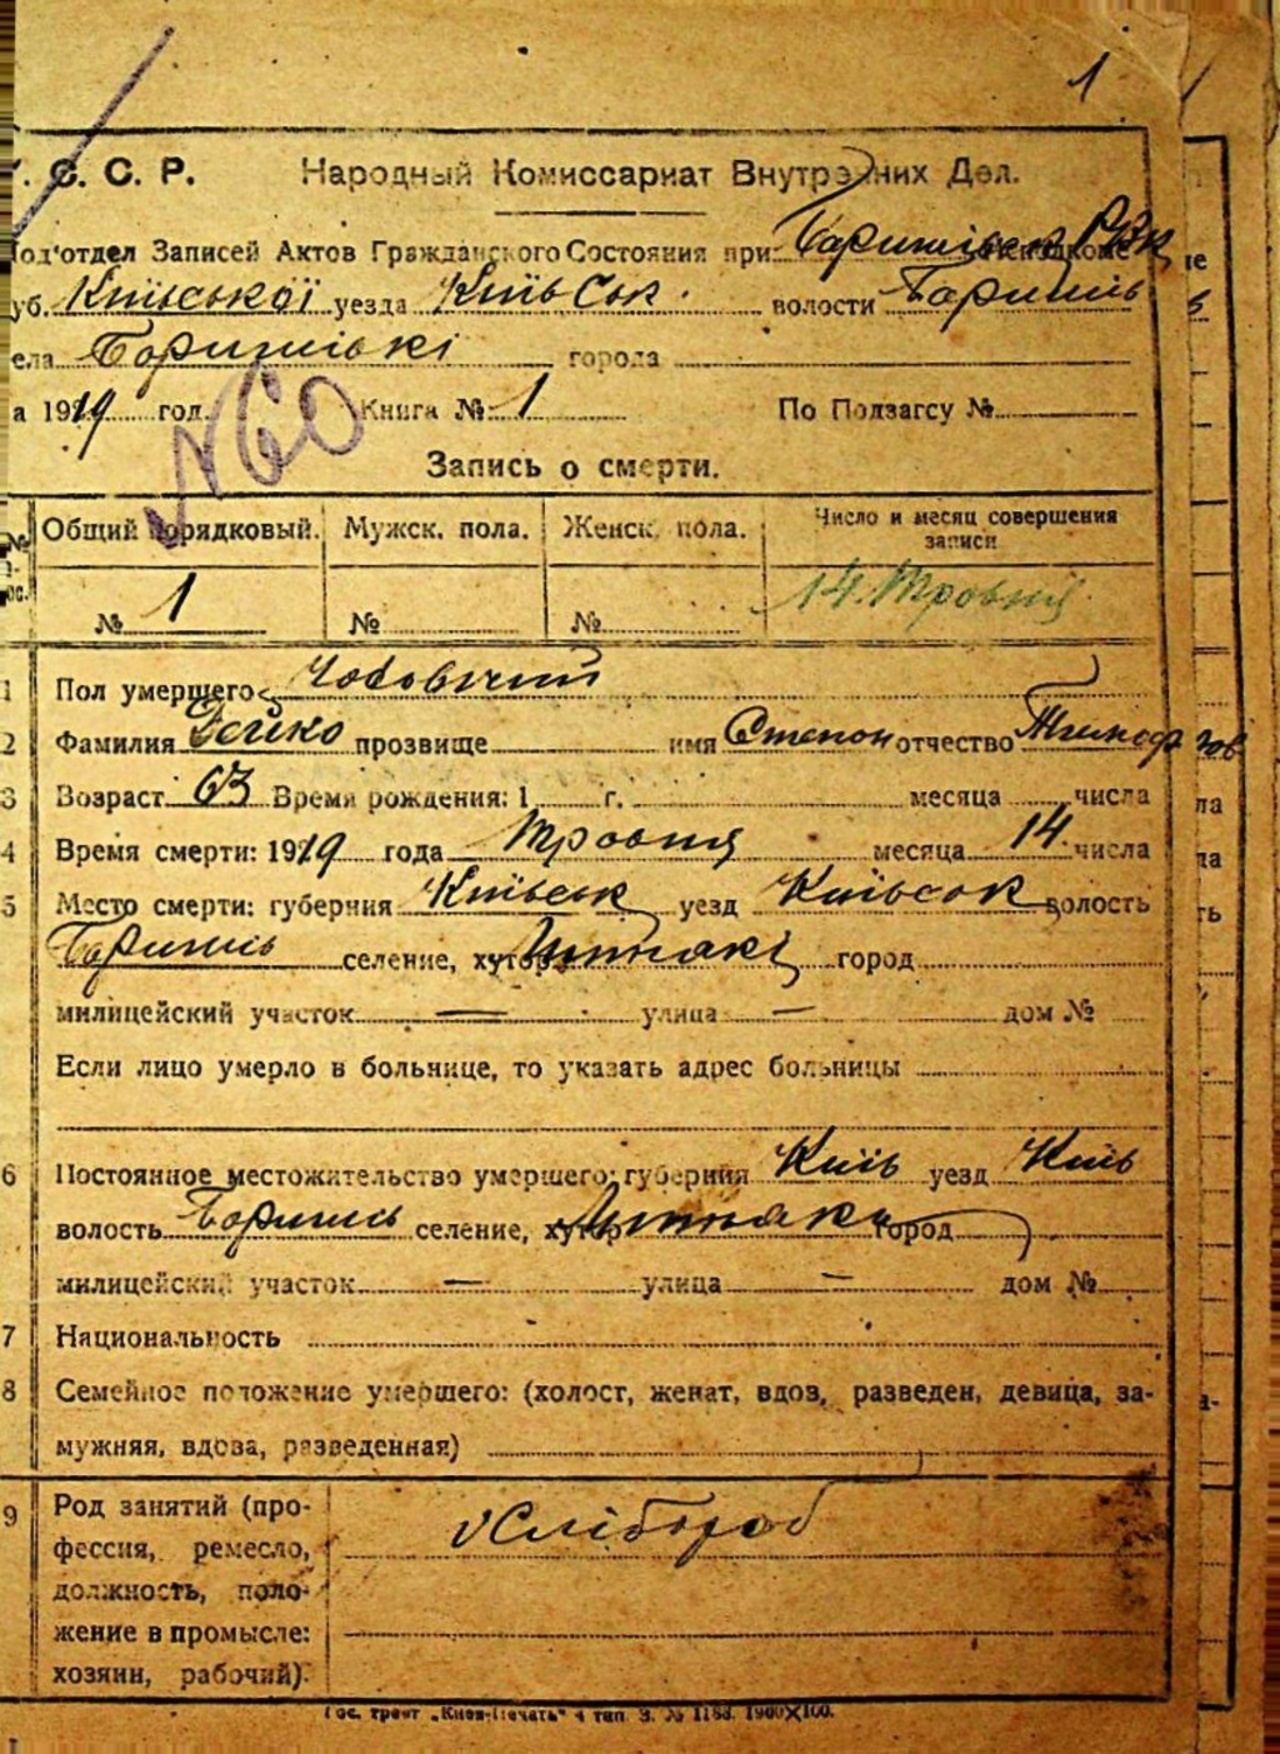 1
. С. С. Р. Народный Комиссариат Внутренних Дел.
Под'отдел Записей Актов Гражданского Состояния при
уб. Київської уезда Київськ. волости Боришпіль
ела города
а 1919 год. Книга № 1 По Подзагсу №
№ 60
Запись о смерти.
Общий порядковый. Мужск. пола. Женск. пола. Число и месяц совершения записи
№ 1 № № 14. Травня
1 Пол умершего Чоловічий
2 Фамилия Дейко прозвище имя Степан отчество Тимофіїв
3 Возраст 63 Время рождения: 1 г. месяца числа
4 Время смерти: 1919 года Травня месяца 14 числа
5 Место смерти: губерния Київськ уезд Київськ волость
селение, хутор город
милицейский участок — улица — дом №
Если лицо умерло в больнице, то указать адрес больницы
6 Постоянное местожительство умершего: губерния Київ уезд Київ
волость селение, хутор город
милицейский участок — улица — дом №
7 Национальность
8 Семейное положение умершего: (холост, женат, вдов, разведен, девица, за-
мужняя, вдова, разведенная)
9 Род занятий (про-
фессия, ремесло, Хлібороб
должность, поло-
жение в промысле:
хозяин, рабочий).
Гос. трест „Киев-Печать" 4 тип. З. № 1188. 1900×100.